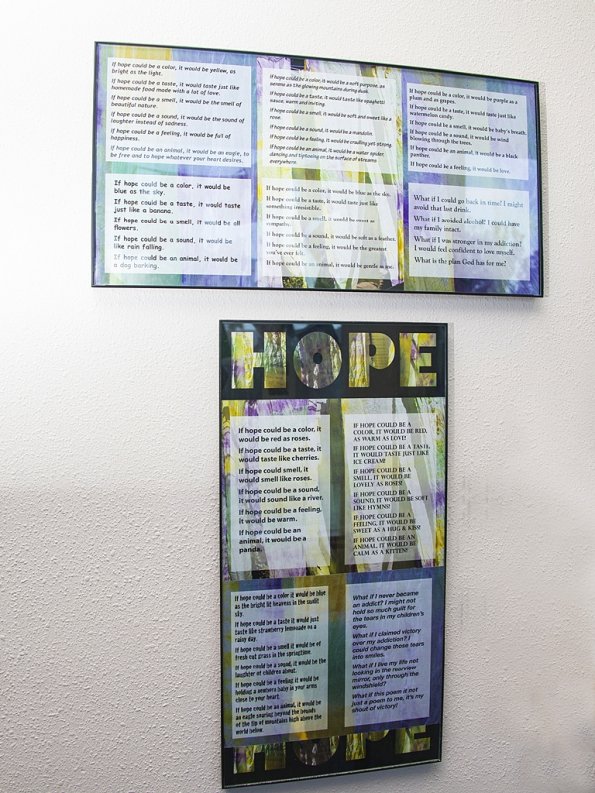 If hope could be a color, it would be yellow, as
bright as the light.
If hope could be a taste, it would taste just like
homemade food made with a lot of love.
If hope could be a smell, it would be the smell of
beautiful nature.
If hope could be a sound, it would be the sound of
laughter instead of sadness.
If hope could be a feeling, it would be full of
happiness.
If hope could be an animal, it would be an eagle, to
be free and to hope whatever your heart desires.
If hope could be a color, it would be a soft purpose, as
serene as the glowing mountains during dusk.
If hope could be a taste, it would taste like spaghetti
sauce, warm and inviting.
If hope could be a smell, it would be soft and sweet like a
rose.
If hope could be a sound, it would be a mandolin.
If hope could be a feeling, it would be cradling yet strong.
If hope could be an animal, it would be a water spider,
dancing and tiptoeing on the surface of streams
everywhere.
If hope could be a color, it would be purple as a
plum and as grapes.
If hope could be a taste, it would taste just like
watermelon candy.
If hope could be a smell, it would be baby's breath.
If hope could be a sound, it would be wind
blowing through the trees.
If hope could be an animal, it would be a black
panther.
If hope could be a feeling, it would be love.
If hope could be a color, it would be
blue as the sky.
If hope could be a taste, it would taste
just like a banana.
If hope could be a smell, it would be all
flowers.
If hope could be a sound, it would be
like rain falling.
If hope could be an animal, it would be
a dog barking.
If hope could be a color, it would be blue as the sky.
If hope could be a taste, it would taste just like
something irresistible.
If hope could be a smell, it would be sweet as
sympathy.
If hope could be a sound, it would be soft as a feather.
If hope could be a feeling, it would be the greatest
you've ever felt.
If hope could be an animal, it would be gentle as
What if I could go back in time? I might
avoid that last drink.
What if I avoided alcohol? I could have
my family intact.
What if I was stronger in my addiction?
I would feel confident to love myself.
What is the plan God has for me?
HOPE
If hope could be a color, it
would be red as roses.
If hope could be a taste, it
would taste like cherries.
If hope could smell, it
would smell like roses.
If hope could be a sound,
it would sound like a river.
If hope could be a feeling,
it would be warm.
If hope could be an
animal, it would be a
panda.
IF HOPE COULD BE A
COLOR, IT WOULD BE RED,
AS WARM AS LOVE!
IF HOPE COULD BE A TASTE,
IT WOULD TASTE JUST LIKE
ICE CREAM!
IF HOPE COULD BE A
SMELL, IT WOULD BE
LOVELY AS ROSES!
IF HOPE COULD BE A
SOUND, IT WOULD BE SOFT
LIKE HYMNS!
IF HOPE COULD BE A
FEELING, IT WOULD BE
SWEET AS A HUG & KISS!
IF HOPE COULD BE AN
ANIMAL, IT WOULD BE
CALM AS A KITTEN!
If hope could be a color it would be blue
as the bright lit heavens in the sunlit
sky.
If hope could be a taste it would just
taste like strawberry lemonade on a
rainy day.
If hope could be a smell it would be of
fresh cut grass in the springtime.
If hope could be a sound, it would be the
laughter of children about.
If hope could be a feeling it would be
holding a newborn baby in your arms
close to your heart.
If hope could be an animal, it would be
an eagle soaring beyond the bounds
of the tip of mountains high above the
world below.
What if I never became
an addict? I might not
hold so much guilt for
the tears in my children's
eyes.
What if I claimed victory
over my addiction? I
could change those tears
into smiles.
What if I live my life not
looking in the rearview
mirror, only through the
windshield?
What if this poem is not
just a poem to me, it's my
shout of victory!
HOPE